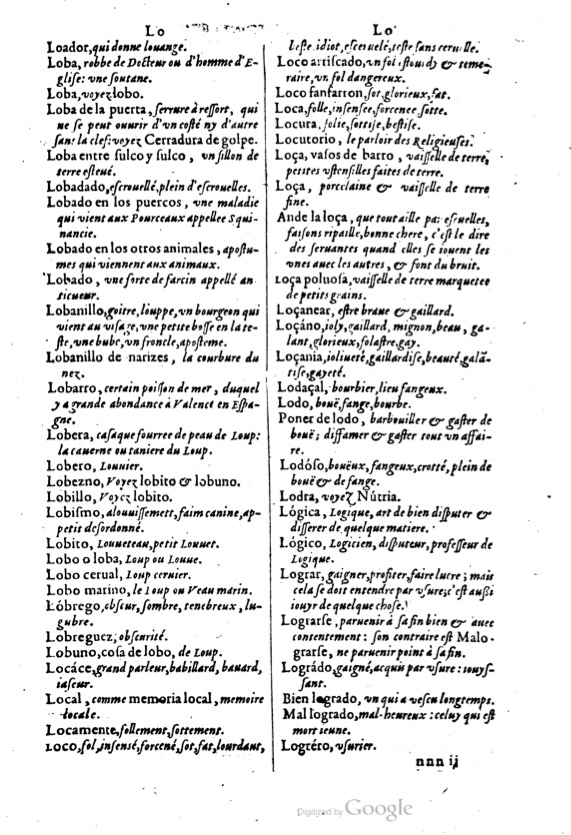 Lo
Loador, qui donne louange.
Loba, robbe de Docteur ou d'homme d'E-
glise: vne soutane.
Loba, voyez lobo.
Loba de la puerta, serrure à ressort, qui
ne se peut ouurir d'vn costé ny d'autre
sans la clef: voyez Cerradura de golpe.
Loba entre sulco y sulco, vn sillon de
terre esleué.
Lobadado, escrouellé, plein d'escrouelles.
Lobado en los puercos, vne maladie
qui vient aux Pourceaux appellee Squi-
nancie.
Lobado en los otros animales, apostu-
mes qui viennent aux animaux.
Lobado, vne forte de farcin appellé an-
ticueur.
Lobanillo, goitre, louppe, vn bourgeon qui
vient au visage, vne petite bosse en la te-
ste, vne bube, vn froncle, aposteme.
Lobanillo de narizes, la courbure du
nez.
Lobarro, certain poisson de mer, duquel
y a grande abondance à Valence en Espa-
gne.
Lobera, casaque fourree de peau de Loup:
la cauerne ou taniere du Loup.
Lobero, Louuier.
Lobezno, Voyez lobito & lobuno.
Lobillo, Voyez lobito.
Lobismo, alouuissemett, faim canine, ap-
petit desordonné.
Lobito, Louueteau, petit Louuet.
Lobo o loba, Loup ou Louue.
Lobo cerual, Loup ceruier.
Lobo marino, le Loup ou Veau marin.
Lóbrego, obscur, sombre, tenebreux, lu-
gubre.
Lobreguez, obscurité.
Lobuno, cosa de lobo, de Loup.
Locáce, grand parleur, babillard, bauard,
iaseur.
Local, comme memoria local, memoire
locale.
Locamente, follement, sottement.
Loco, fol, insensé, forcené, sot, fat, lourdaut,
Lo
teste idiot, esceruelé, teste sans ceruelle.
Loco arriscado, vn fol estourdy & teme-
raire, vn fol dangereux.
Loco fanfarron, sot, glorieux, fat.
Loca, folle, insensee, forcenee, sotte.
Locura, folie, sottise, bestise.
Locutorio, le parloir des Religieuses.
Loça, vasos de barro, vaisselle de terre,
petites vstensilles faites de terre.
Loça, porcelaine & vaisselle de terre
fine.
Ande la loça, que tout aille par escuelles,
faisons ripaille, bonne chere, c'est le dire
des seruantes quand elles se iouent les
vnes auec les autres, & font du bruit.
Loça poluosa, vaisselle de terre marquetee
de petits grains.
Loçanear, estre braue & gaillard.
Loçáno, ioly, gaillard, mignon, beau, ga-
lant, glorieux, folastre, gay.
Loçania, iolieueté, gaillardise, beauté, galã-
tise, gayeté.
Lodaçal, bourbier, lieu fangeux.
Lodo, bouë, fange, bourbe.
Poner de lodo, barbouiller & gaster de
bouë; diffamer & gaster tout vn affai-
re.
Lodóso, boueux, fangeux, crotté, plein de
bouë & de fange.
Lodra, voyez Nutria.
Lógica, Logique, art de bien disputer &
differer de quelque matiere.
Lógico, Logicien, disputeur, professeur de
Logique.
Lograr, gaigner, profiter, faire lucre; mais
cela se doit entendre par vsure; c'est aussi
iouyr de quelque chose.
Lograrse, paruenir à sa fin bien & auec
contentement: son contraire est Malo-
grarse, ne paruenir point à sa fin.
Logrado, gaigné, acquis par vsure: iouys-
sant.
Bien logrado, vn qui a vescu longtemps.
Mal logrado, mal-heureux: celuy qui est
mort ieune.
Logréro, vsurier.
nnn ij
Digitized by Google